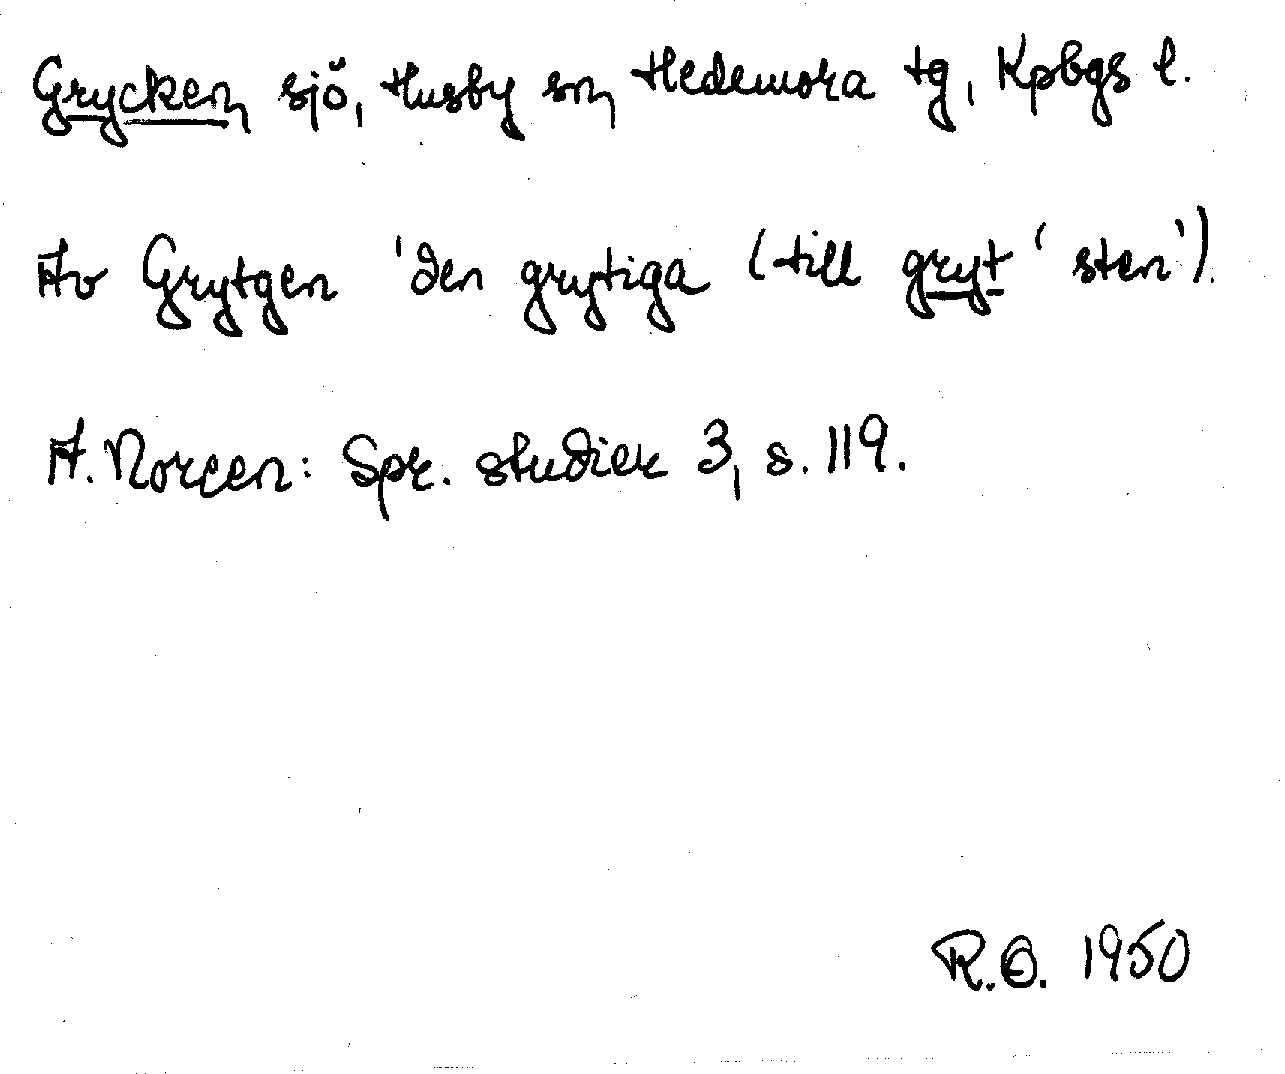 Grycken sjö, Husby sn, Hedemora tg, Kpbgs l.
Av Grytgen 'den grytiga (till gryt 'sten').
A. Noreen: Spr. studier 3, s. 119.
R.O. 1950